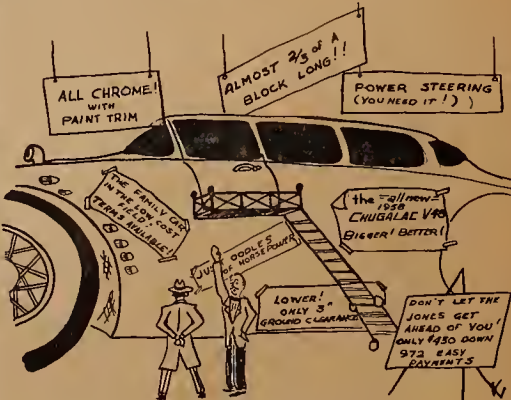 ALL CHROME!
WITH
PAINT TRIM
ALMOST 2/3 of A
BLOCK LONG!!
POWER STEERING
(YOU NEED IT!))
THE FAMILY CAR
IN THE LOW COST
FIELD!
TERMS AVAILABLE!
the "all new"
1958
CHUGALAC V48
BIGGER! BETTER!
OODLES
OF HORSEPOWER
LOWER!
ONLY 3"
GROUND CLEARANCE
DON'T LET THE
JONES GET
AHEAD OF YOU!
ONLY $450 DOWN
972 EASY
PAYMENTS